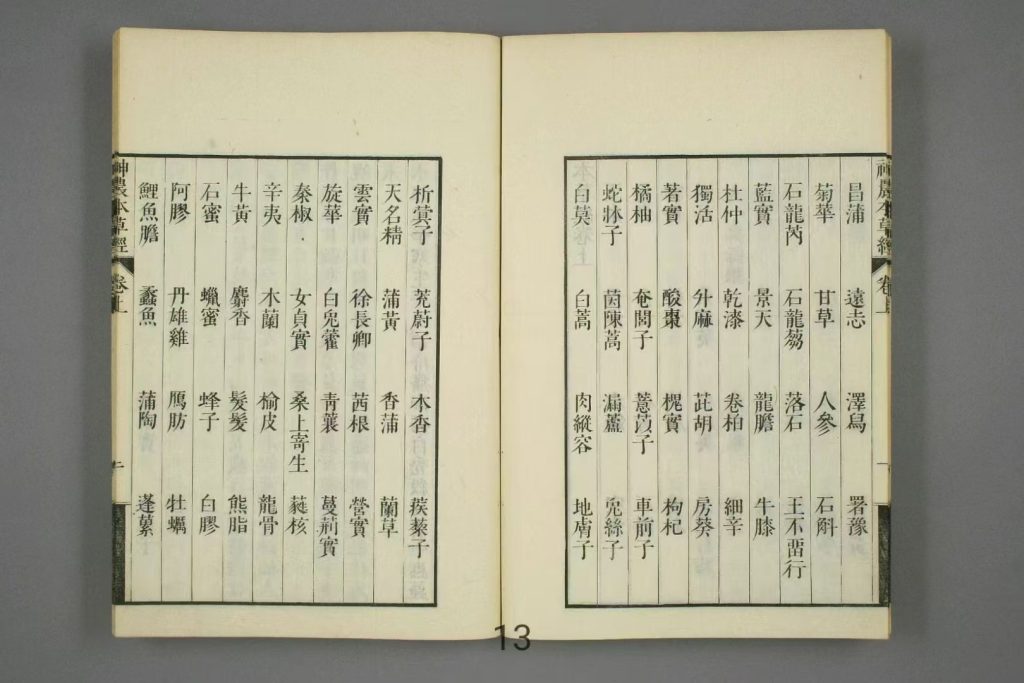 神農本草經 卷上
昌蒲 遠志 澤舄 署豫
菊華 甘草 人參 石斛
石龍芮 石龍芻 落石 王不畱行
藍實 景天 龍膽 牛膝
杜仲 乾漆 卷柏 細辛
獨活 升麻 茈胡 房葵
蓍實 酸棗 槐實 枸杞
橘柚 奄閭子 薏苡子 車前子
蛇牀子 茵陳蒿 漏蘆 兔絲子
白莫 白蒿 肉縱容 地膚子
析蓂子 茺蔚子 木香 蒺藜子
天名精 蒲黃 香蒲 蘭草
雲實 徐長卿 茜根 營實
旋華 白兔藿 青蘘 蔓荊實
秦椒 女貞實 桑上寄生 蕤核
辛夷 木蘭 榆皮 龍骨
牛黃 麝香 髮髲 熊脂
石蜜 蠟蜜 蜂子 白膠
阿膠 丹雄雞 鴈肪 牡蠣
鯉魚膽 蠡魚 蒲陶 蓬蔂
神農本草經 卷上
13